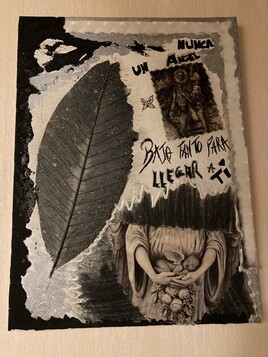 NUNCA
UN ANGEL
BAJO TANTO PARA
LLEGAR A Ti